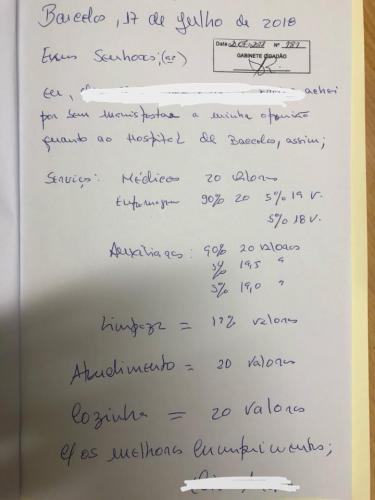 Barcelos, 17 de Julho de 2018
Exmos Senhores;(as)
Data Nº 781
GABINETE CIDADÃO
Eu, achei
por bem manifestar a minha opinião
quanto ao Hospital de Barcelos, assim;
Serviços: Médicos 20 valores
Enfermagem 90% 20 5% 19 v.
5% 18 v.
Auxiliares: 90% 20 valores
5% 19,5 "
5% 19,0 "
Limpeza = valores
Atendimento = 20 valores
Cozinha = 20 valores
c/ os melhores cumprimentos;